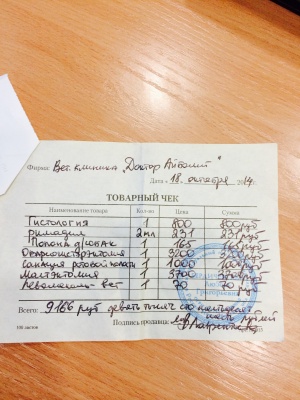 Фирма Вет. клиника „Доктор Айболит"
Дата „ 18 " октября 2014г.
ТОВАРНЫЙ ЧЕК
Наименование товара Кол-во Цена Сумма
Гистология 800 800 руб
Римадил 2 мл 231 231 руб
Попона д/собак 1 165 165 руб
Овариогистерэктомия 3200
Санация ротовой полости 1000
Мастэктомия 3700
Революшен вет 70 70 руб
Всего: 9166 руб девять тысяч сто шестьдесят
шесть рублей
Подпись продавца:
100 листов